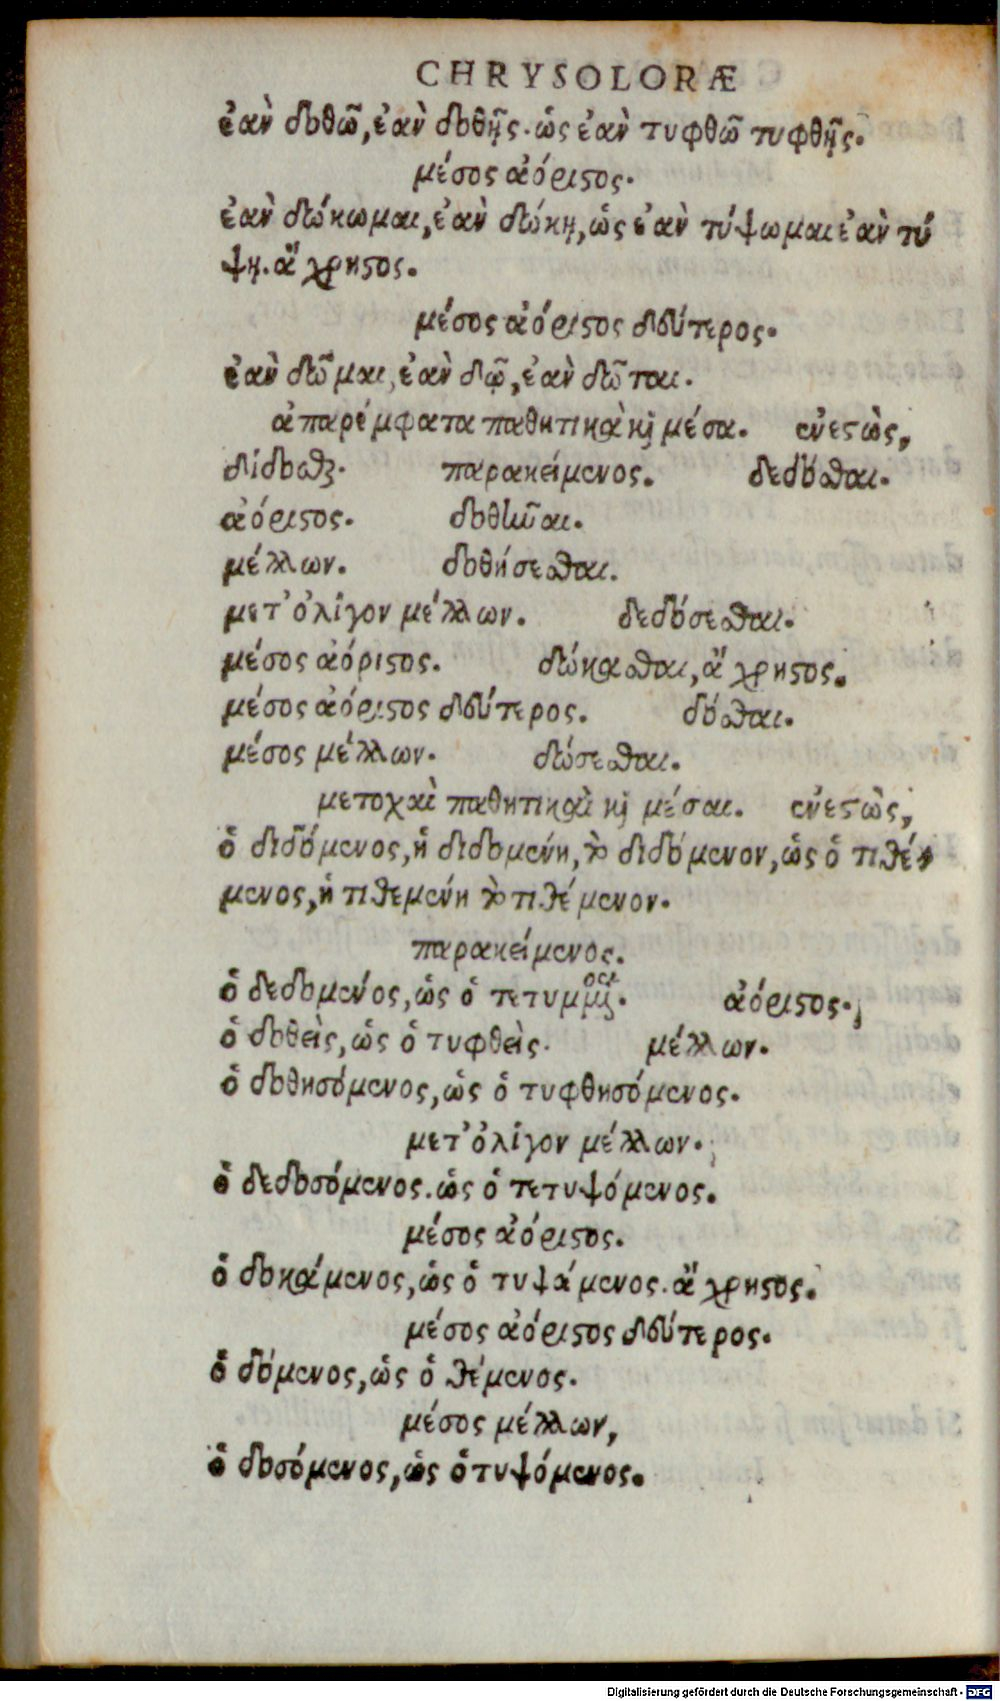 CHRYSOLORÆ
ἐὰν δοθῶ, ἐὰν δοθῇς. ὡς ἐὰν τυφθῶ τυφθῇς.
μέσος ἀόριστος.
ἐὰν δώκωμαι, ἐὰν δώκῃ, ὡς ἐὰν τύψωμαι ἐὰν τύ
ψῃ. ἄχρηστος.
μέσος ἀόριστος δεύτερος.
ἐὰν δῶμαι, ἐὰν δῷ, ἐὰν δῶται.
ἀπαρέμφατα παθητικὰ καὶ μέσα. ἐνεστὼς,
δίδοσθαι. παρακείμενος. δεδόσθαι.
ἀόριστος. δοθῆναι.
μέλλων. δοθήσεσθαι.
μετ' ὀλίγον μέλλων. δεδόσεσθαι.
μέσος ἀόριστος. δώκασθαι, ἄχρηστος.
μέσος ἀόριστος δεύτερος. δόσθαι.
μέσος μέλλων. δώσεσθαι.
μετοχαὶ παθητικαὶ καὶ μέσαι. ἐνεστὼς,
ὁ διδόμενος, ἡ διδομένη, τὸ διδόμενον, ὡς ὁ τιθέ-
μενος, ἡ τιθεμένη τὸ τιθέμενον.
παρακείμενος.
ὁ δεδομένος, ὡς ὁ τετυμμένος. ἀόριστος.
ὁ δοθεὶς, ὡς ὁ τυφθεὶς. μέλλων.
ὁ δοθησόμενος, ὡς ὁ τυφθησόμενος.
μετ' ὀλίγον μέλλων.
ὁ δεδοσόμενος. ὡς ὁ τετυψόμενος.
μέσος ἀόριστος.
ὁ δοκάμενος, ὡς ὁ τυψάμενος. ἄχρηστος.
μέσος ἀόριστος δεύτερος.
ὁ δόμενος, ὡς ὁ θέμενος.
μέσος μέλλων,
ὁ δοσόμενος, ὡς ὁ τυψόμενος.
Digitalisierung gefördert durch die Deutsche Forschungsgemeinschaft - DFG